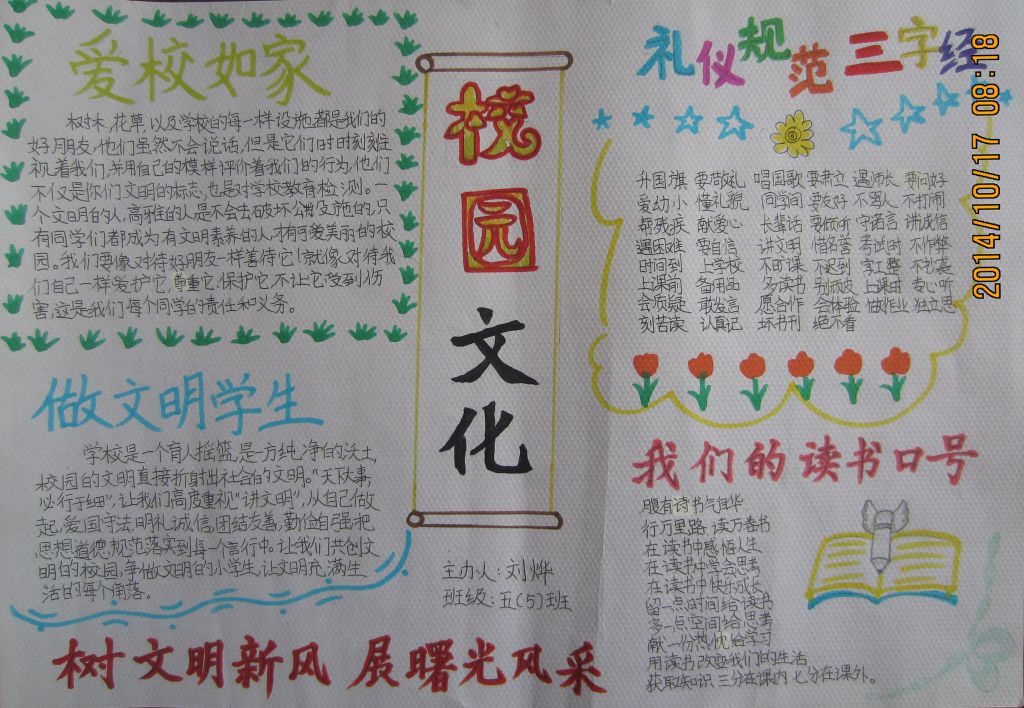 爱校如家
树木,花草,以及学校的每一样设施,都是我们的
好朋友,他们虽然不会说话,但是它们时时刻刻在
视着我们,并用自己的模样评价着我们的行为,他们
不仅是你们文明的标志,也是对学校教育检测。一
个文明的人,高雅的人是不会去破坏公共设施的,只
有同学们都成为有文明素养的人,才有可爱美丽的校
园。我们要像对待好朋友一样善待它!就像对待我
们自己一样爱护它,尊重它,保护它,不让它受到伤
害,这是我们每个同学的责任和义务。
做文明学生
学校是一个育人摇篮,是一方纯净的沃土,
校园的文明直接折射出社会的文明。“天下大事,
必行于细”,让我们高度重视“讲文明”,从自己做
起,爱国守法,明礼诚信,团结友善,勤俭自强,把
思想道德规范落实到每一个言行中。让我们共创文
明的校园,争做文明的小学生,让文明充满生
活的每个角落。
树文明新风 展曙光风采
校园文化
主办人:刘烨
班级:五(5)班
礼仪规范三字经
升国旗 要敬礼 唱国歌 要肃立 遇师长 要问好
爱幼小 懂礼貌 同学间 要友好 不骂人 不打闹
帮残疾 献爱心 长辈话 要倾听 守诺言 讲诚信
遇困难 要自信 讲文明 惜名誉 考试时 不作弊
时间到 上学校 不旷课 不迟到 字工整 不抄袭
上课前 备用品 多读书 别顽皮 上课时 专心听
会质疑 敢发言 愿合作 会体验 做作业 独立思
刻苦读 认真记 坏书刊 绝不看
我们的读书口号
腹有诗书气自华
行万里路 读万卷书
在读书中感悟人生
在读书中学会思考
在读书中快乐成长
留一点时间给读书
多一点空间给思考
献一份热忱给学习
用读书改变我们的生活
获取知识 三分在课内 七分在课外。
2014/10/17 08:18